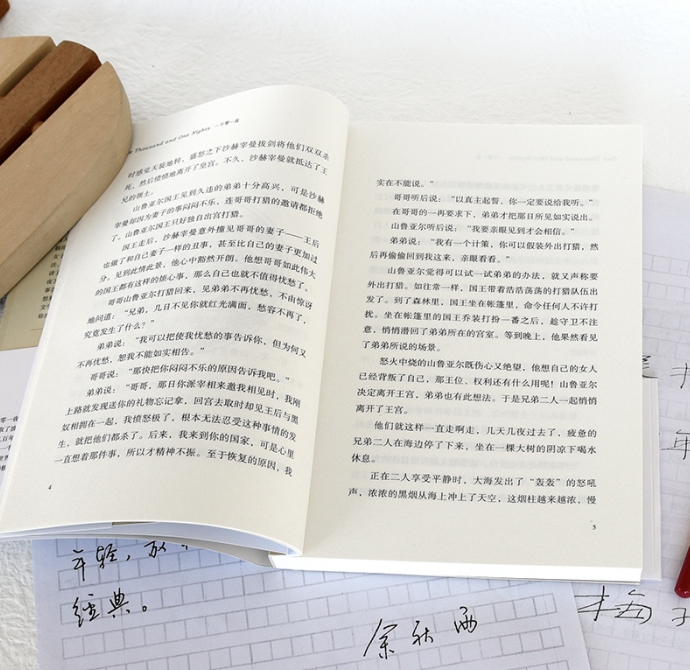 One Thousand and One Nights 一千零一夜
时感觉天旋地转，盛怒之下沙赫宰曼拔剑将他们双双杀
死，然后愤愤地离开了皇宫。不久，沙赫宰曼就抵达了王
兄的领土。
山鲁亚尔国王见到久违的弟弟十分高兴，可是沙赫
宰曼却因为妻子的事闷闷不乐、连哥哥打猎的邀请都拒绝
了。山鲁亚尔国王只好独自出宫打猎。
国王走后，沙赫宰曼意外撞见哥哥的妻子——王后
也做了和自己妻子一样的丑事，甚至比自己的妻子更加过
分。见到此情此景，他心中豁然开朗。他想哥哥如此伟大
的国王都有这样的烦心事，那么自己也就不值得忧愁了。
哥哥山鲁亚尔打猎回来，见弟弟不再忧愁，不由惊讶
地问道：“兄弟，几日不见你就红光满面，愁容不再了，
究竟发生了什么？”
弟弟说：“我可以把使我忧愁的事告诉你，但为何又
不再忧愁，恕我不能如实相告。”
哥哥说：“那快把你闷闷不乐的原因告诉我吧。”
弟弟说：“哥哥，那日你派宰相来邀我相见时，我刚
上路就发现送你的礼物忘记拿，回宫去取时却见王后与黑
奴相拥在一起，我愤怒极了，根本无法忍受这种事情的发
生，就把他们都杀了。后来，我来到你的国家，可是心里
一直想着那件事，所以才精神不振。至于恢复的原因，我
4
实在不能说。”
哥哥听后说：“以真主起誓，你一定要说给我听。”
在哥哥的一再要求下，弟弟才把那日所见如实说出。
山鲁亚尔听后说：“我要亲眼见到才会相信。”
弟弟说：“我有一个计策，你可以假装外出打猎，然
后再偷偷回到我这来，亲眼看看。”
山鲁亚尔觉得可以试一试弟弟的办法，就又声称要
外出打猎。如往常一样，国王带着浩浩荡荡的打猎队伍出
发了。到了森林里，国王坐在帐篷里，命令任何人不许打
扰。坐在帐篷里的国王乔装打扮一番之后，趁守卫不注
意，悄悄潜回了弟弟所在的宫室。等到晚上，他果然看见
了弟弟所说的场景。
怒火中烧的山鲁亚尔既伤心又绝望，他想自己的女人
已经背叛了自己，那王位、权利还有什么用呢！山鲁亚尔
决定离开王宫，弟弟也有此想法。于是兄弟二人一起悄悄
离开了王宫。
他们就这样一直走啊走，几天几夜过去了，疲惫的
兄弟二人在海边停了下来，坐在一棵大树的阴凉下喝水
休息。
正在二人享受平静时，大海发出了“轰轰”的怒吼
声，浓浓的黑烟从海上冲上了天空，这烟柱越来越浓，慢
5
年轻，
经典。
余秋雨
梅子